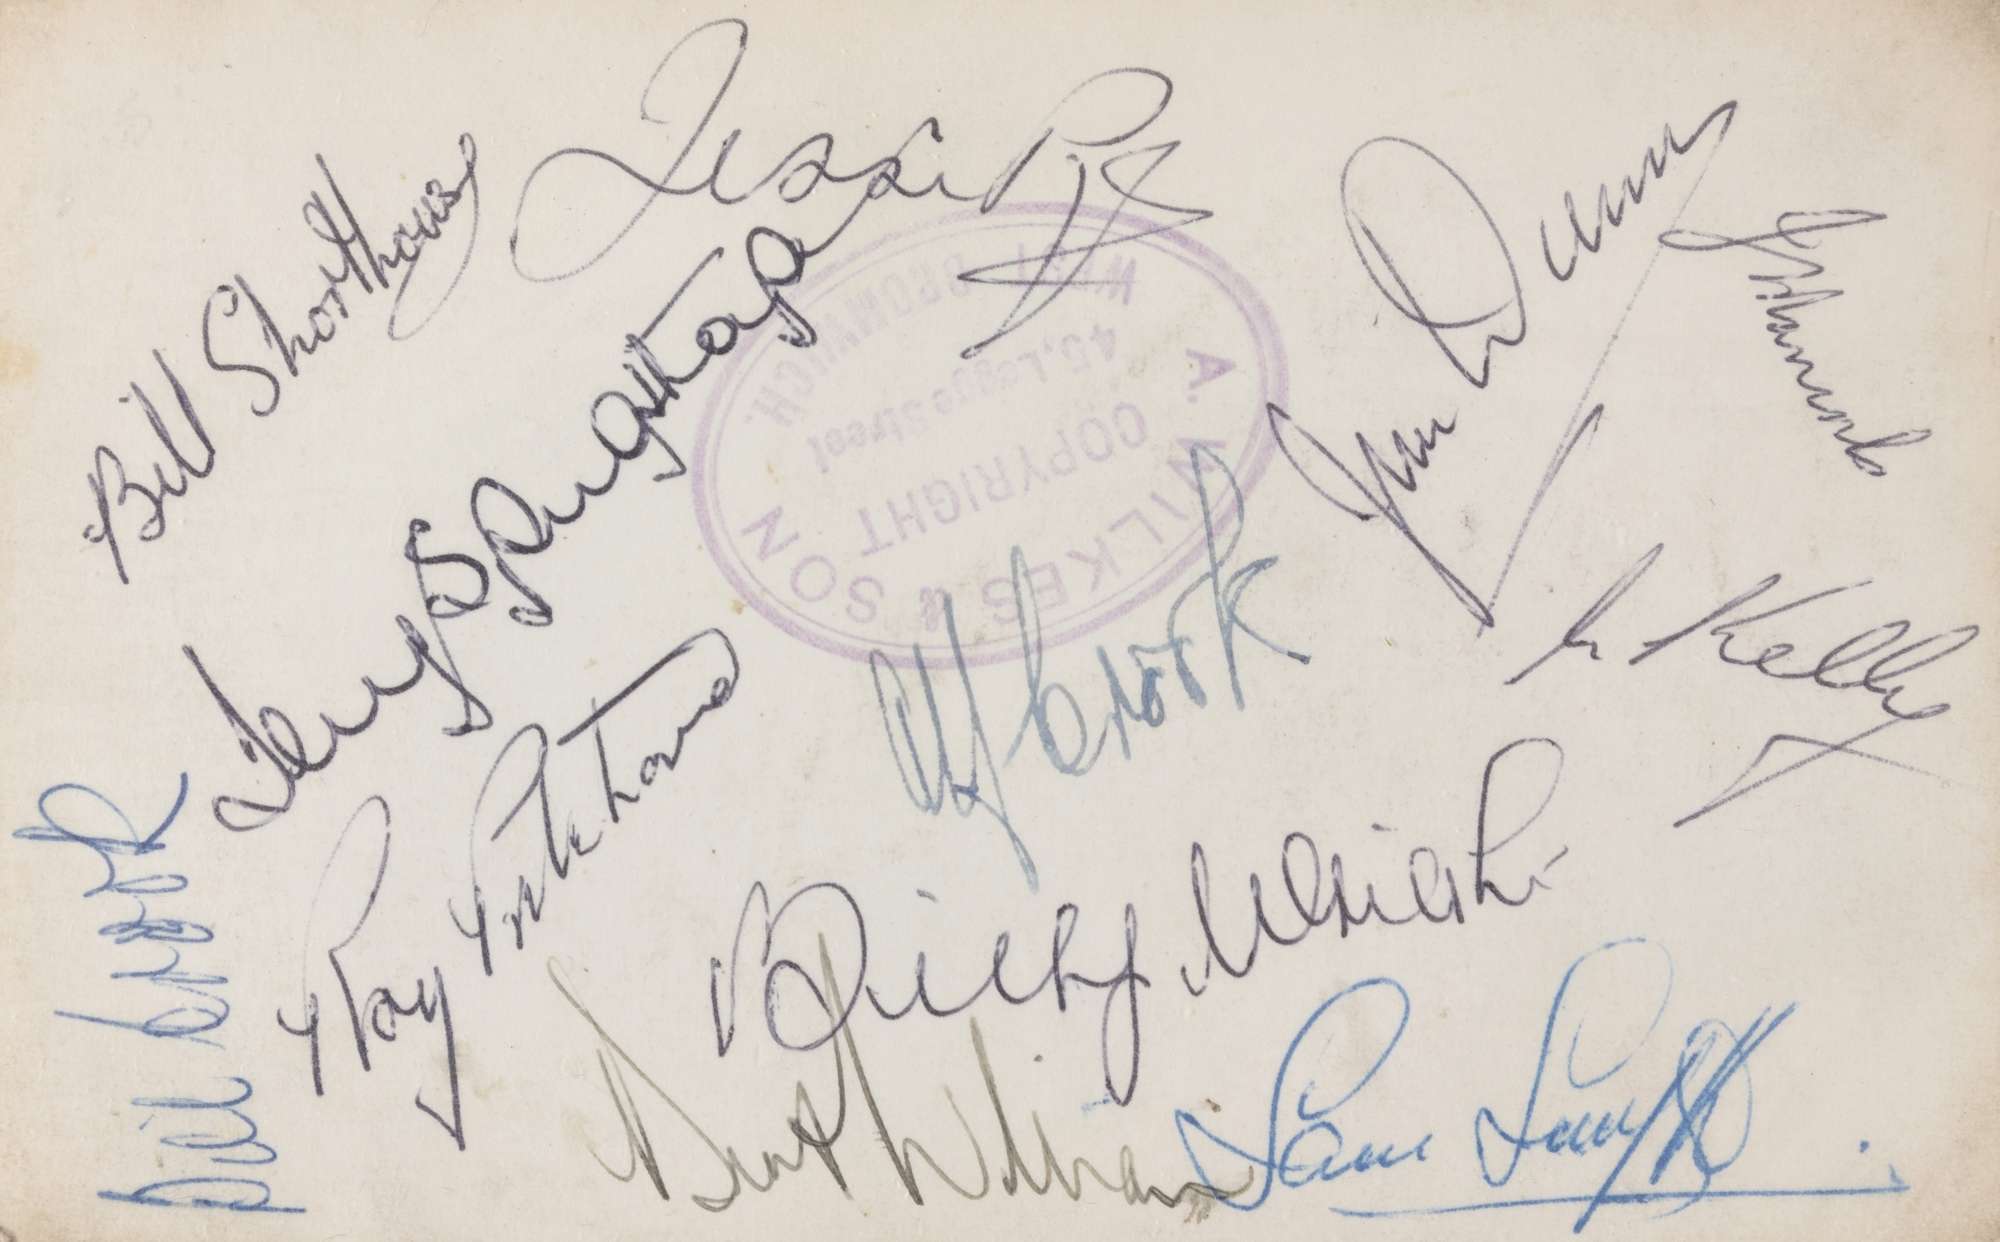 Bill Shorthouse
Jesse Pye
Jim Dunn
Terry Springthorpe
L Kelly
Alf Crook
Bill Crook
Ray Pritchard
Billy Wright
Bert Williams
Sam Smyth
A. WILKES & SON
COPYRIGHT
45, Logue Street
WEST BROMWICH.